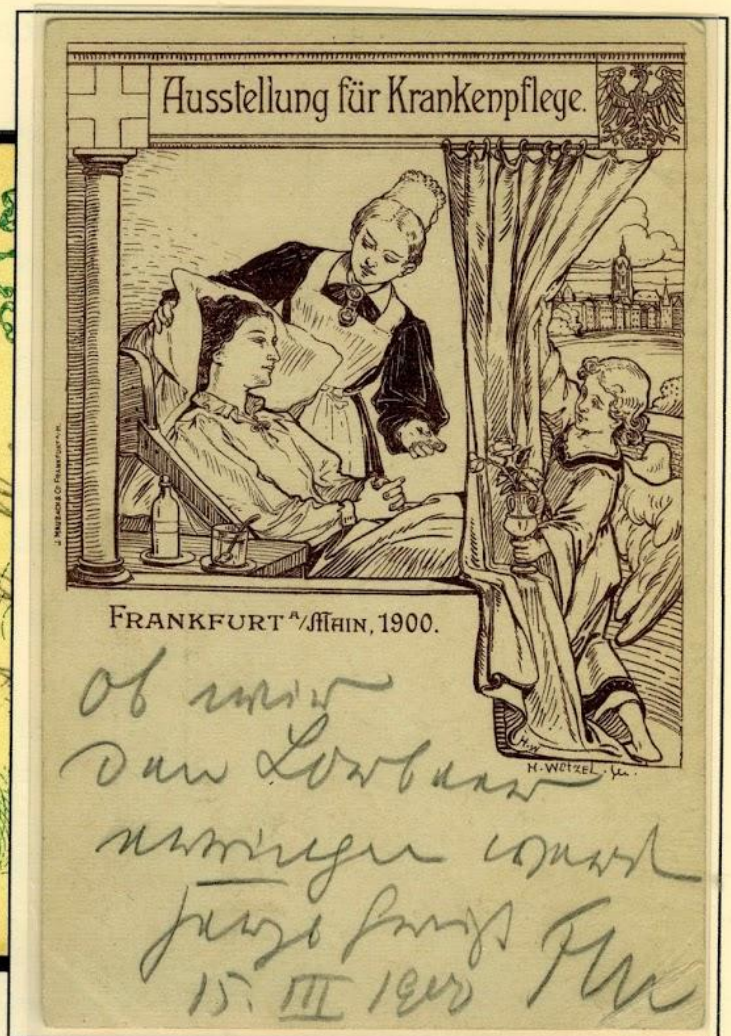 Ausstellung für Krankenpflege.
J. MAUBACH & Co FRANKFURT A. M.
FRANKFURT A/MAIN, 1900.
H.W
H. WETZEL.
Ob wir
den Lorbeer
erringen
15. III 1900